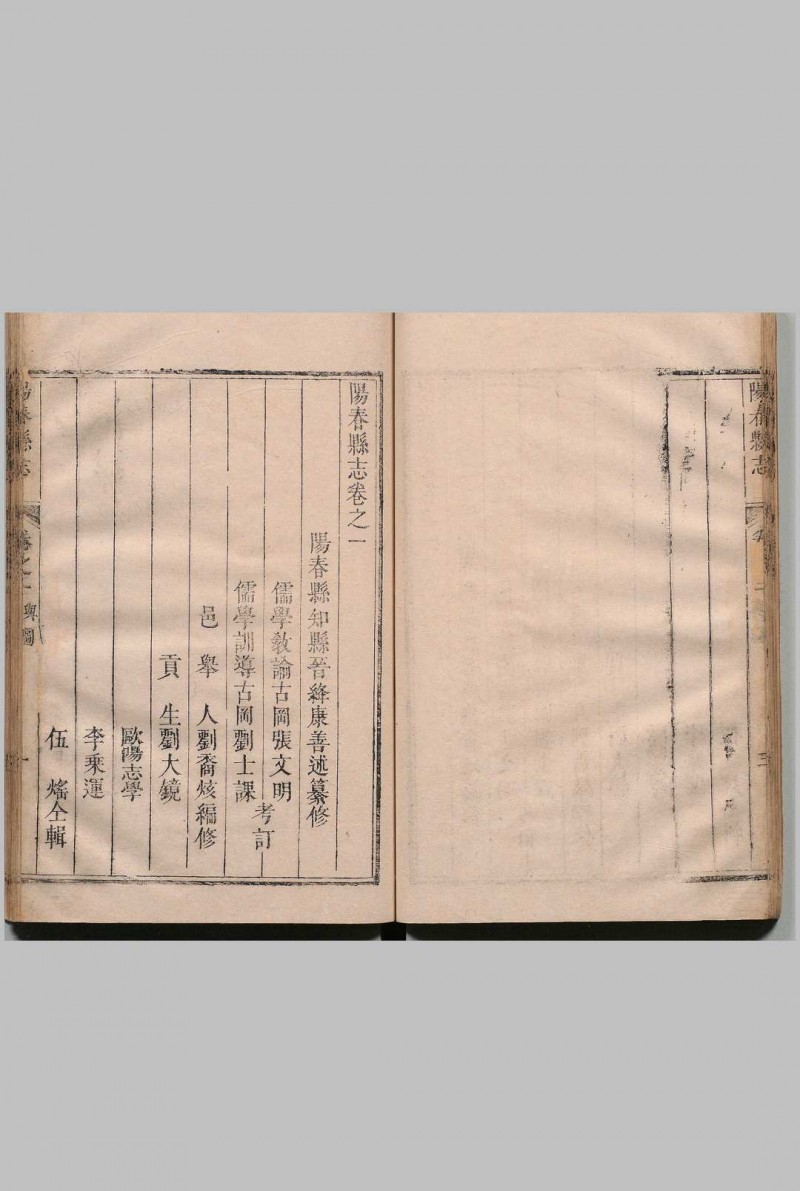 陽春縣志
陽春縣志卷之一
陽春縣知縣晉絳康善述纂修
儒學教諭古岡張文明
儒學訓導古岡劉士課
考訂
邑舉人劉裔炫編修
貢生劉大鏡
歐陽志學
李乘運
伍熺仝輯
陽春縣志
卷之一
輿圖
一